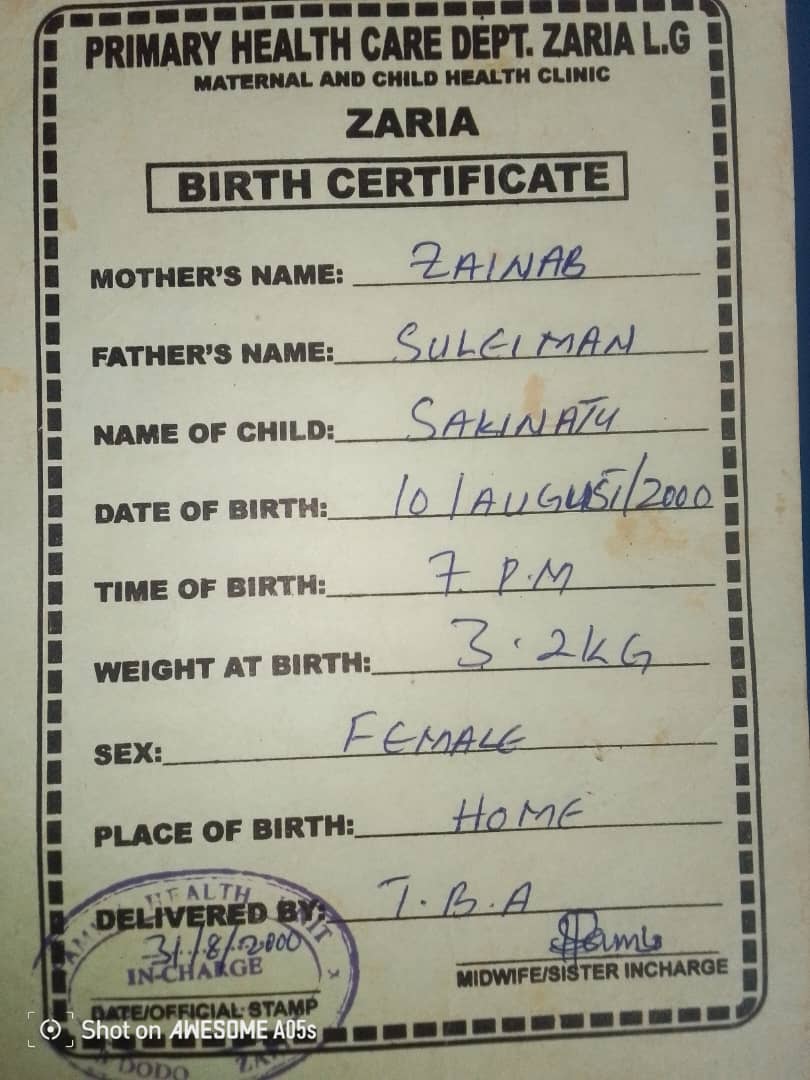 PRIMARY HEALTH CARE DEPT. ZARIA L.G
MATERNAL AND CHILD HEALTH CLINIC
ZARIA
BIRTH CERTIFICATE
MOTHER'S NAME: ZAINAB
FATHER'S NAME: SULEIMAN
NAME OF CHILD: SAKINATU
DATE OF BIRTH: 10/AUGUST/2000
TIME OF BIRTH: 7 P.M
WEIGHT AT BIRTH: 3.2KG
SEX: FEMALE
PLACE OF BIRTH: HOME
DELIVERED BY: T.B.A
HEALTH
31/8/2000
IN-CHARGE
MIDWIFE/SISTER INCHARGE
DATE/OFFICIAL STAMP
Shot on AWESOME A05s
DODO